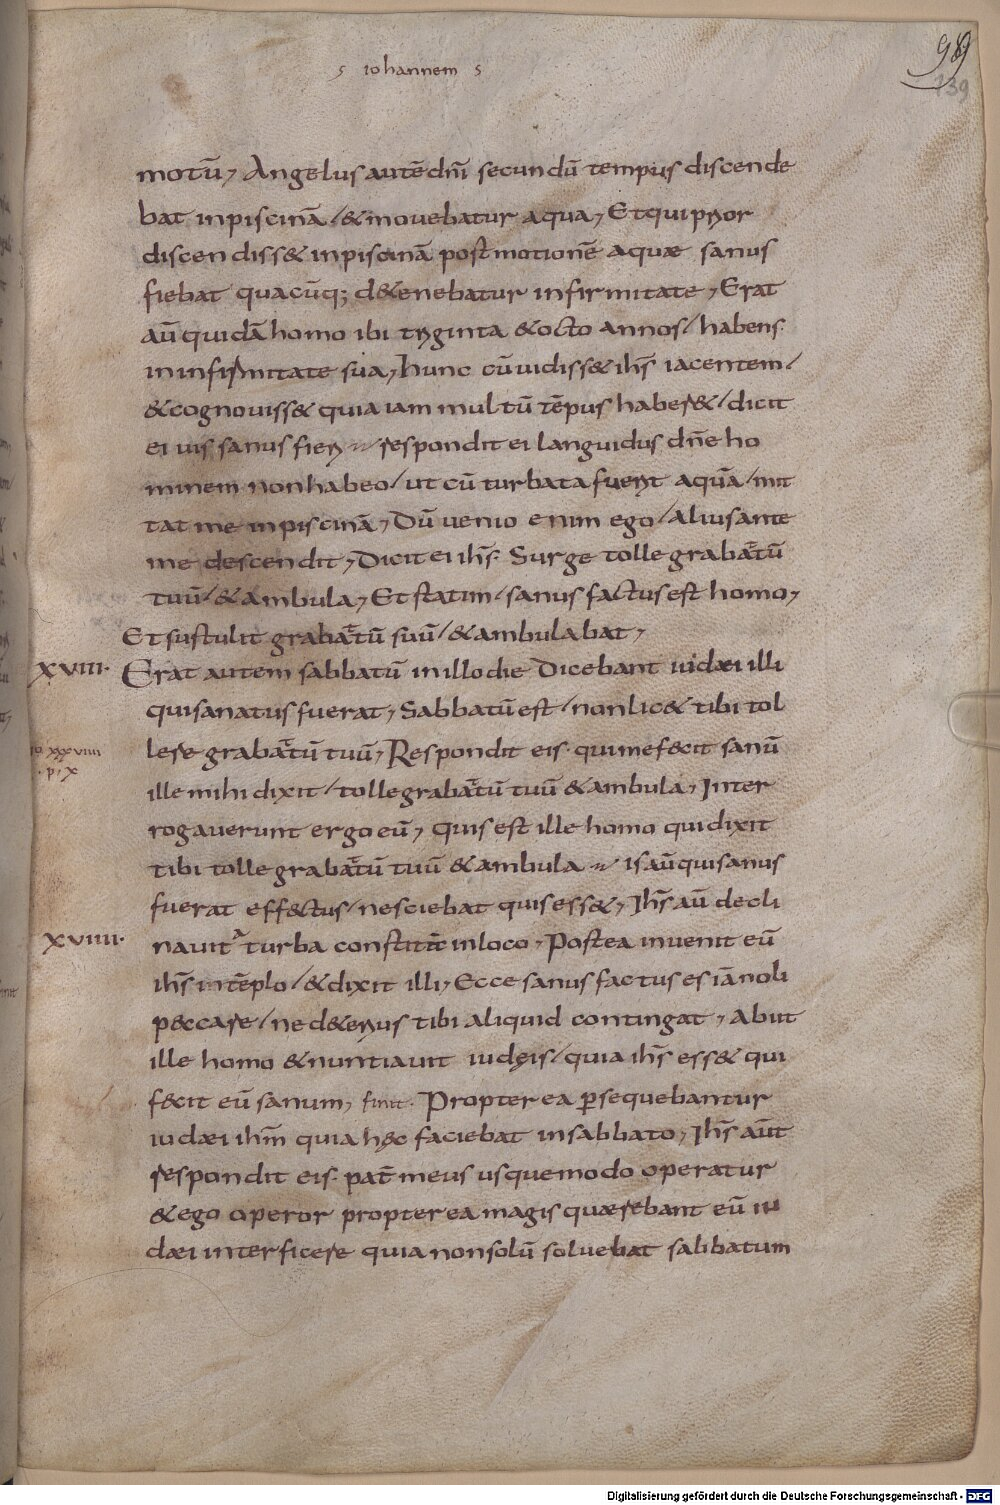 s iohannem s
98
139
motū, Angelus autē dn̄i secundū tempus discende
bat inpiscinā / & mouebatur aqua, Et qui prior
discendiss& inpiscinā post motionē aquæ sanus
fiebat quacūq; d&enebatur infirmitate, Erat
aū quidā homo ibi triginta & octo annos / habens
in infirmitate sua, hunc cū uidiss& ih̄s iacentem /
& cognouiss& quia iam multū tēpus haber& / dicit
ei uis sanus fieri respondit ei languidus dn̄e ho
minem non habeo / ut cū turbata fuerit aquā / mit
tat me inpiscinā, Dū uenio enim ego / Alius ante
me descendit, Dicit ei ih̄s. Surge tolle grabātū
tuū / & ambula, Et statim / sanus factus est homo,
Et sustulit grabātū suū / & ambulabat,
XVIII. Erat autem sabbatū in illo die Dicebant iudæi illi
qui sanatus fuerat, Sabbatū est / non lic& tibi tol
lere grabātū tuū, Respondit eis. qui me fecit sanū
io xxxviiii
. p. x
ille mihi dixit / tolle grabātū tuū & ambula, Inter
rogauerunt ergo eū, quis est ille homo qui dixit
tibi tolle grabātū tuū & ambula is aū qui sanus
fuerat eff&ctus / nesciebat quis ess&, Ih̄s aū decli
XVIIII. nauit a turba constitē in loco, Postea inuenit eū
ih̄s in tēplo / & dixit illi, Ecce sanus factus es iā noli
p&ccare / ne d&erius tibi aliquid contingat, Abiit
ille homo & nuntiauit iudęis / quia ih̄s ess& qui
f&cit eū sanum, finit. Propterea persequebantur
iudæi ihm̄ quia hęc faciebat in sabbato, Ih̄s aūt
respondit eis. pat̄ meus usque modo operatur
& ego operor propterea magis quærebant eū iu
dæi interficere quia non solū soluebat sabbatum
Digitalisierung gefördert durch die Deutsche Forschungsgemeinschaft - DFG